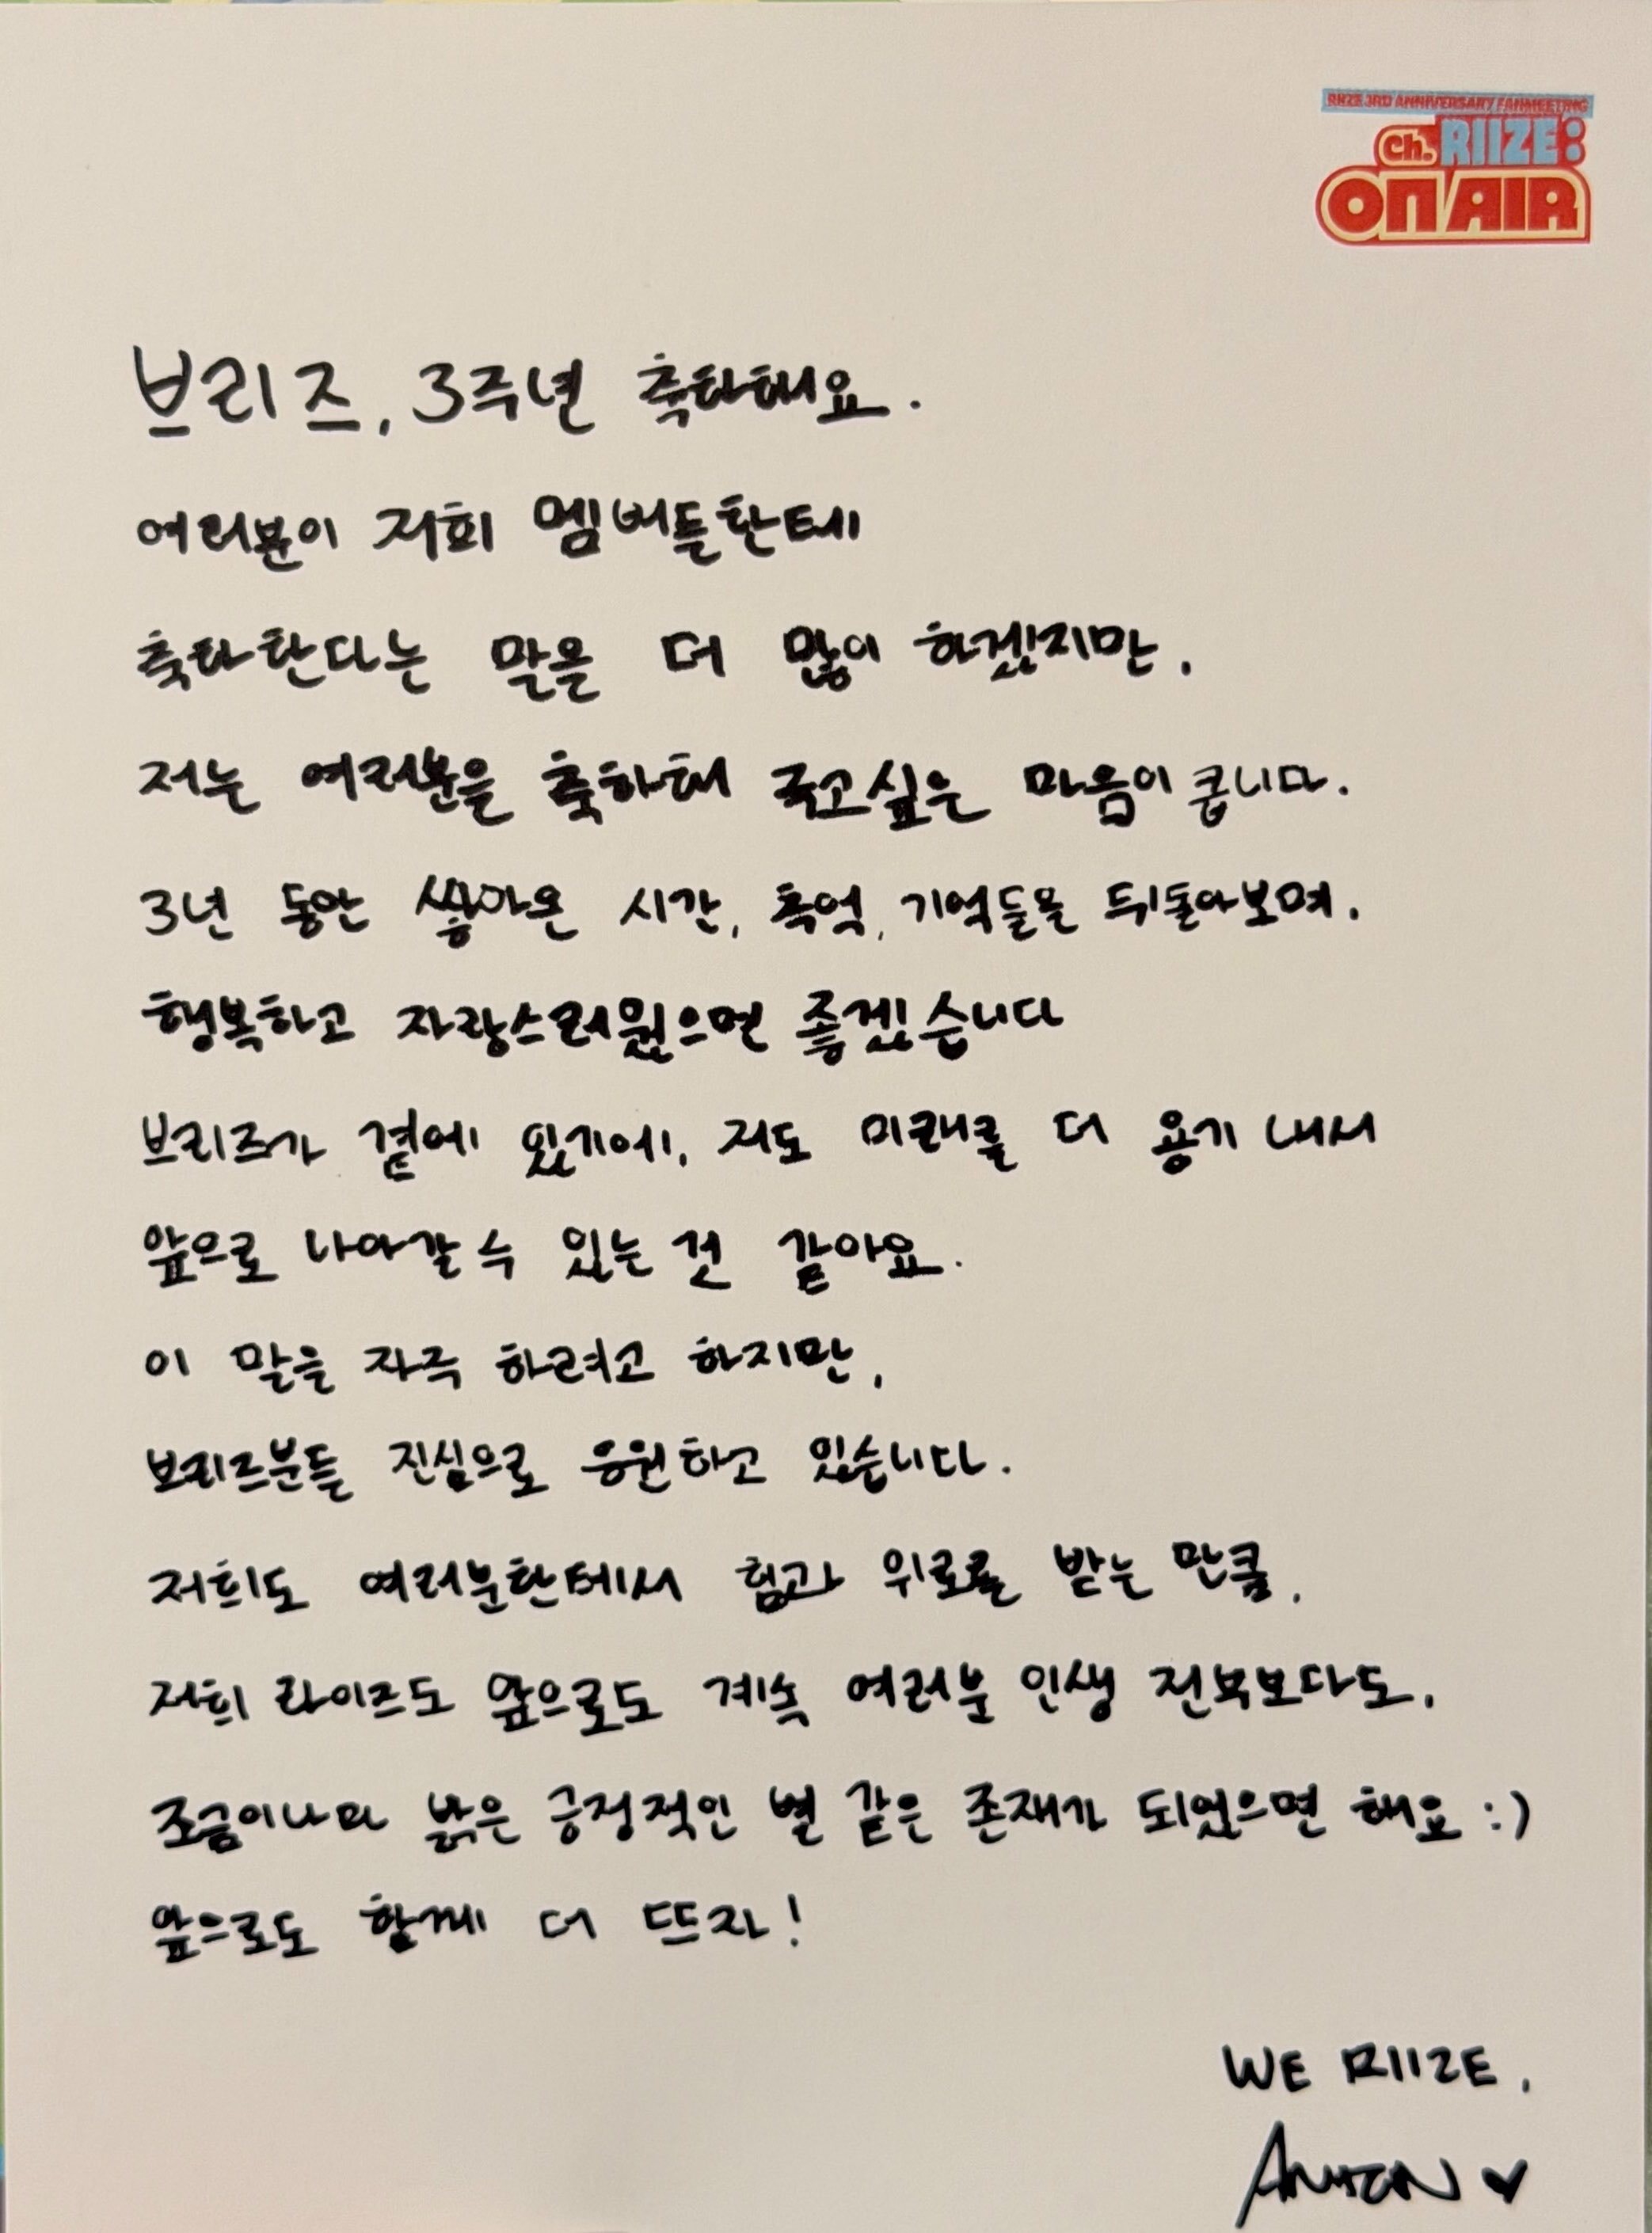 RIIZE 3RD ANNIVERSARY FANMEETING
Ch. RIIZE:
ON AIR
브리즈, 3주년 축하해요.
여러분이 저희 멤버들한테
축하한다는 말을 더 많이 하겠지만,
저는 여러분을 축하해 주고싶은 마음이 큽니다.
3년 동안 쌓아온 시간, 추억, 기억들을 뒤돌아보며,
행복하고 자랑스러웠으면 좋겠습니다
브리즈가 곁에 있기에, 저도 미래를 더 용기 내서
앞으로 나아갈 수 있는 것 같아요.
이 말을 자주 하려고 하지만,
브리즈분들 진심으로 응원하고 있습니다.
저희도 여러분한테서 힘과 위로를 받는 만큼,
저희 라이즈도 앞으로도 계속 여러분 인생 전보보다도,
조금이나마 밝은 긍정적인 별 같은 존재가 되었으면 해요 :)
앞으로도 함께 더 뜨자!
WE RIIZE,
ANTON ♥